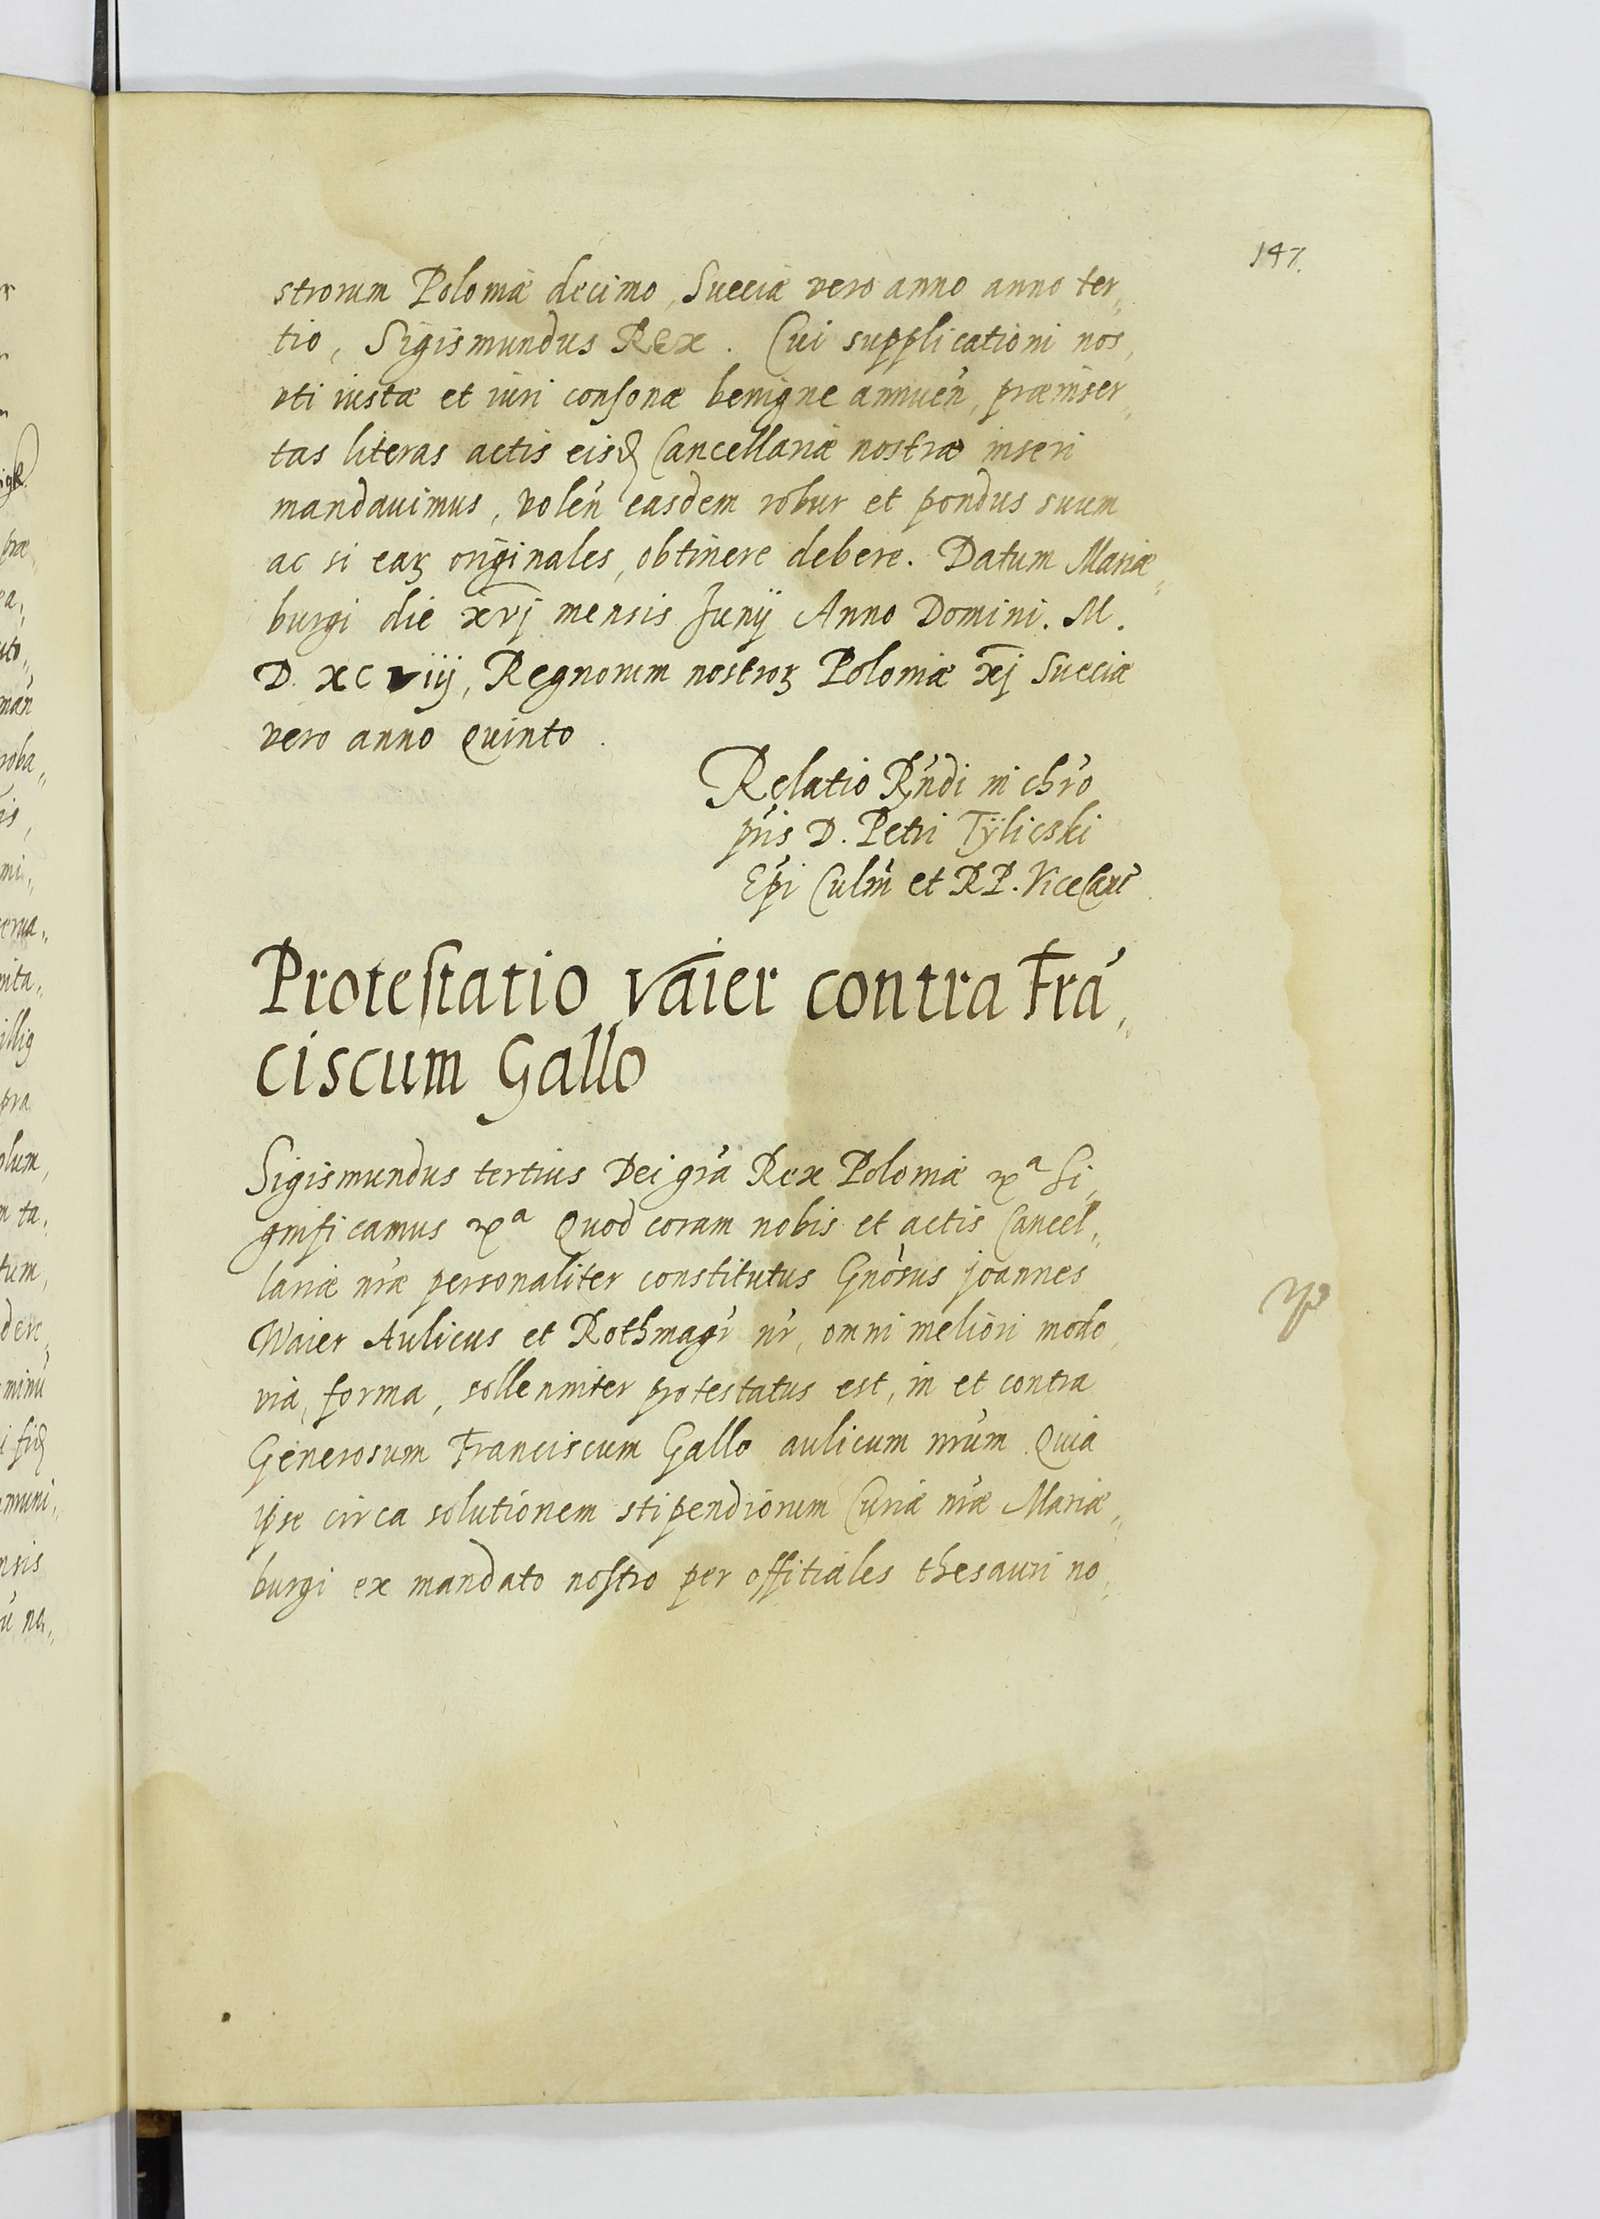 147.
strorum Poloniæ decimo, Sueciæ vero anno anno ter„
tio, Sigismundus Rex. Cui supplicationi nos,
vti iustæ et iuri consonæ benigne annuen̄, præinser„
tas literas actis eisđ Cancellariæ nostræ inseri
mandauimus, volen̄ easdem robur et pondus suum
ac si eaꝝ originales, obtinere debere. Datum Mariæ„
burgi die xvj mensis Junij Anno Domini. M.
D. XC viij, Regnorum nostroꝝ Poloniæ xj Sueciæ
vero anno Quinto.
Relatio Rńdi in chro
pris D. Petri Tÿlicski
Epi Culm̄ et RP. ViceCanc̄
Protestatio vaier contra Frā„
ciscum Gallo
Sigismundus tertius Dei grā Rex Poloniæ Si„
gnificamus Quod coram nobis et actis Cancel„
lariæ nr̄æ personaliter constitutus Gnōsus joannes
Waier Aulicus et Rothmagr̄ nr̄, omni meliori modo,
via, forma, sollenniter protestatus est, in et contra
Generosum Franciscum Gallo aulicum nr̄um Quia
ipse circa solutionem stipendiorum Curiæ nr̄æ Mariæ„
burgi ex mandato nostro per offitiales thesauri no„